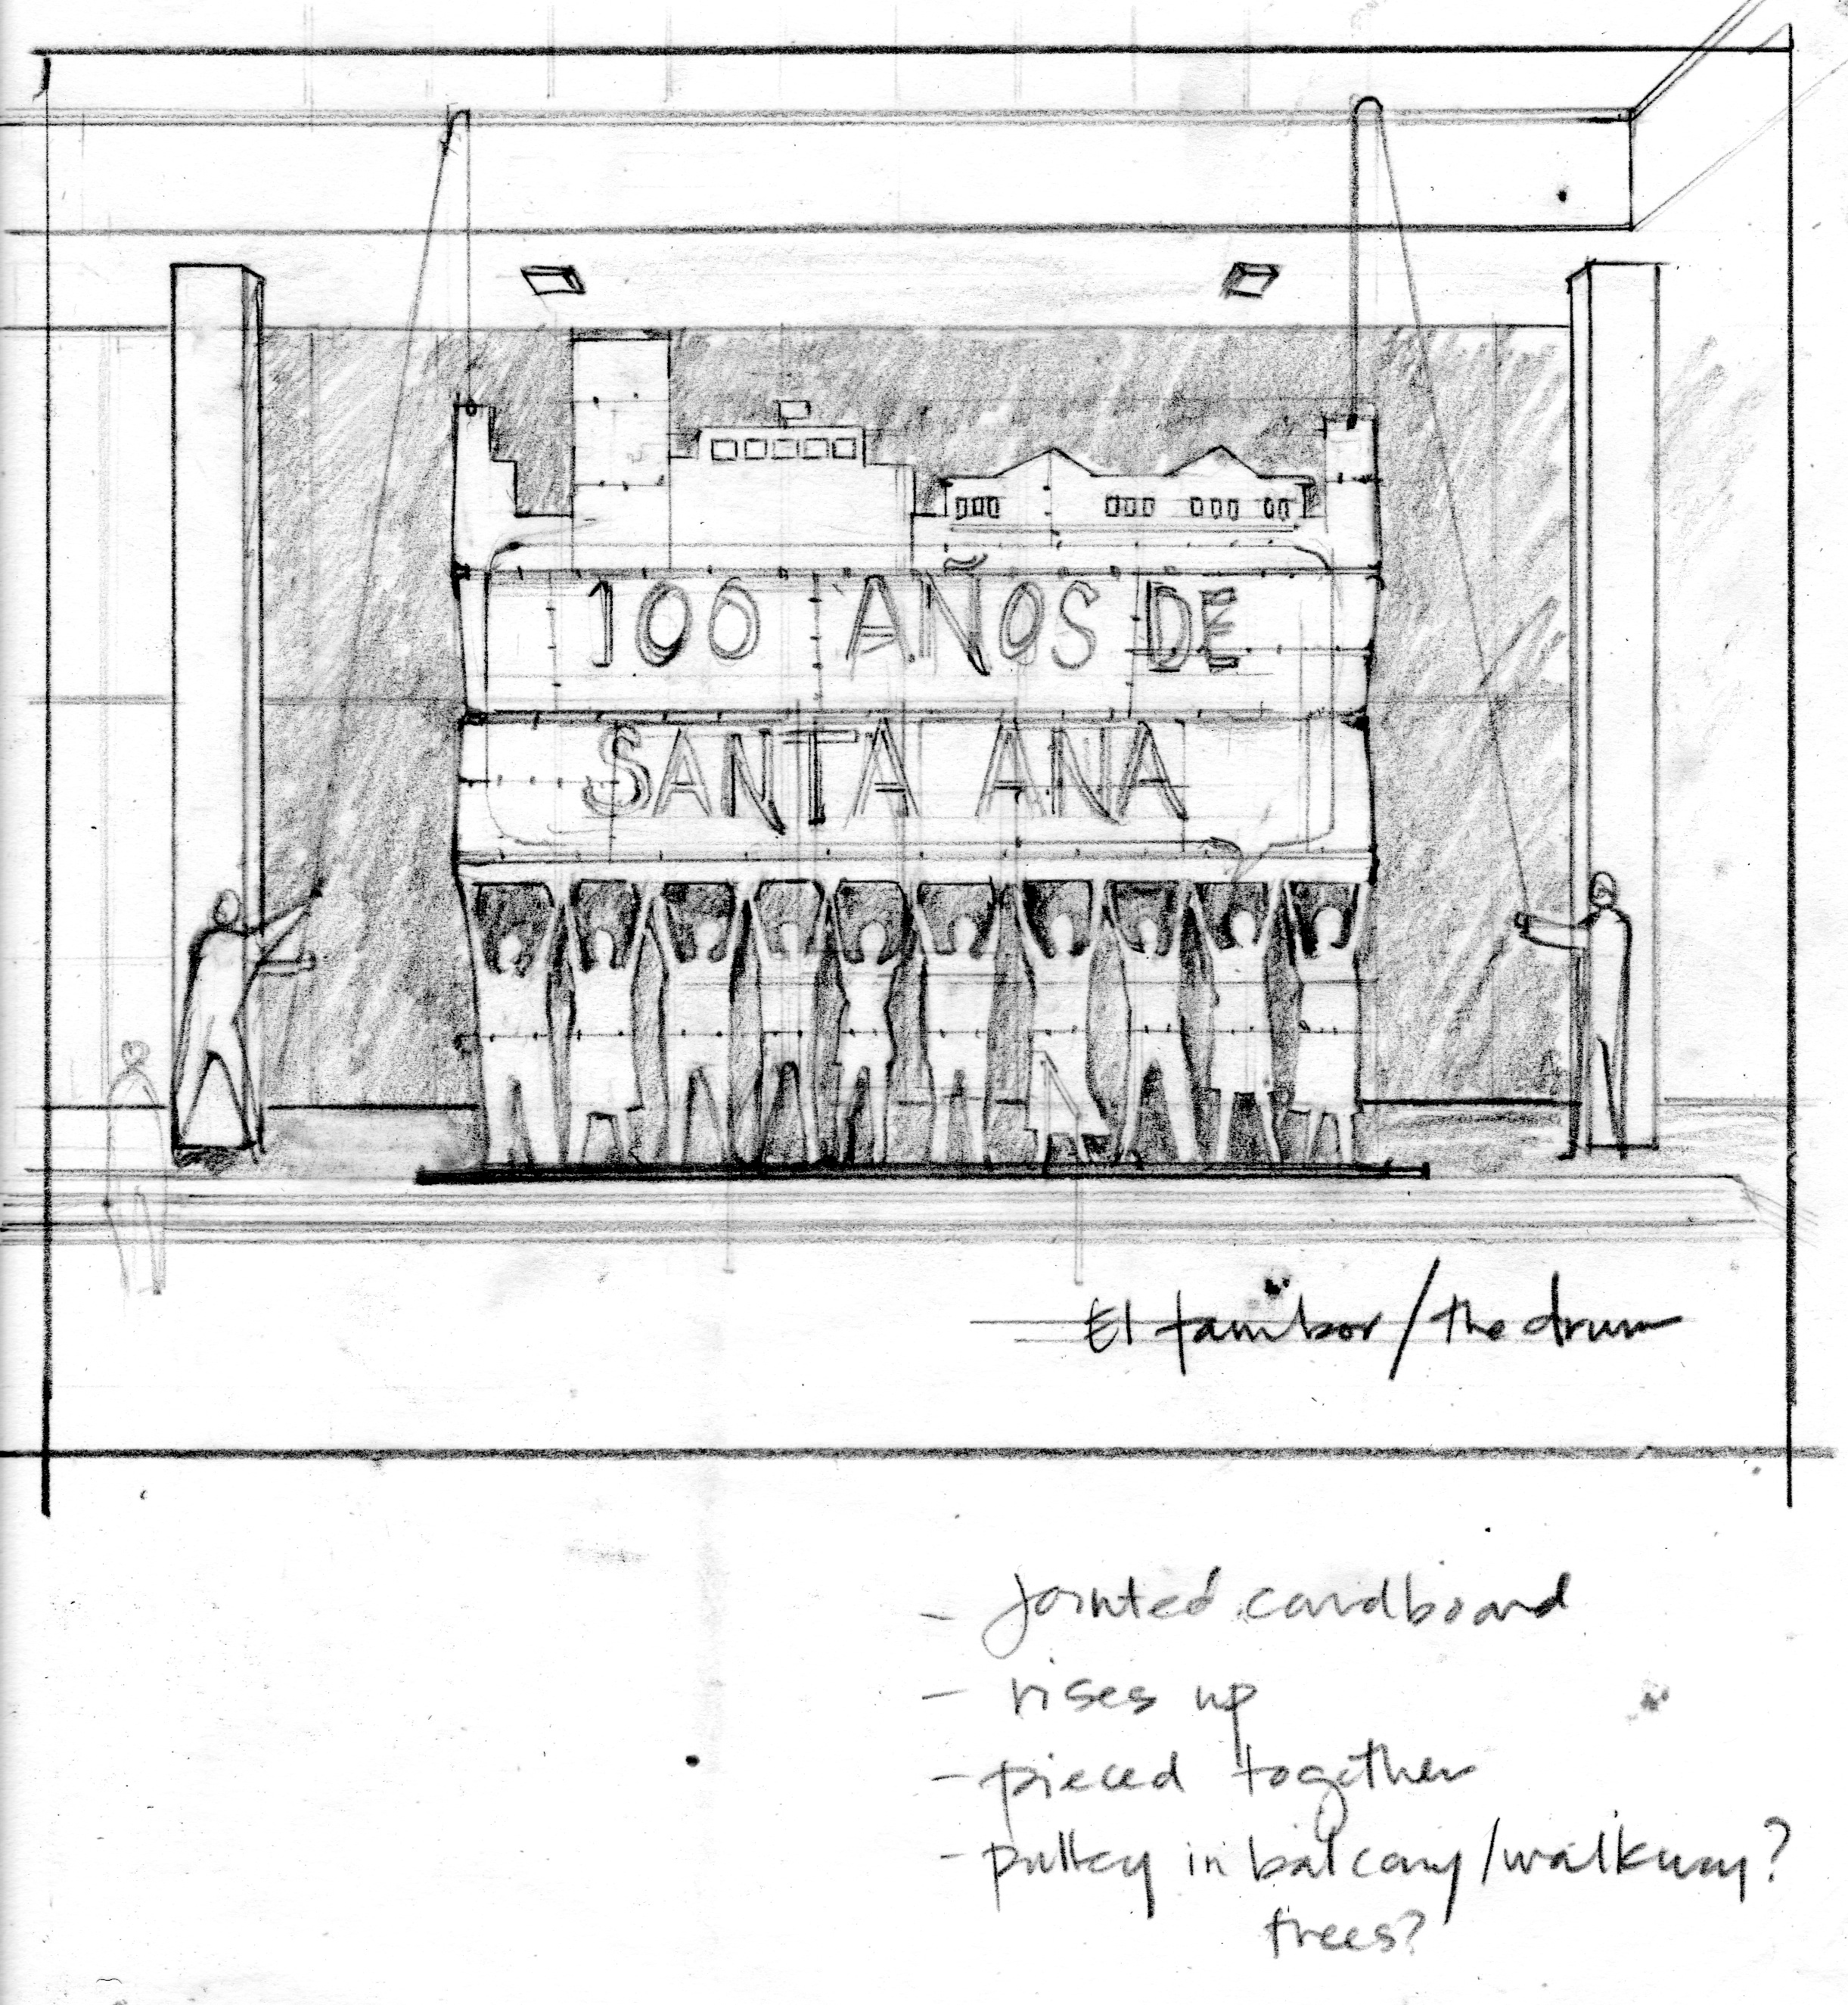 100 AÑOS DE
SANTA ANA
El tambor/the drum
- jointed cardboard
- rises up
- pieced together
- pulley in balcony/walkway?
trees?